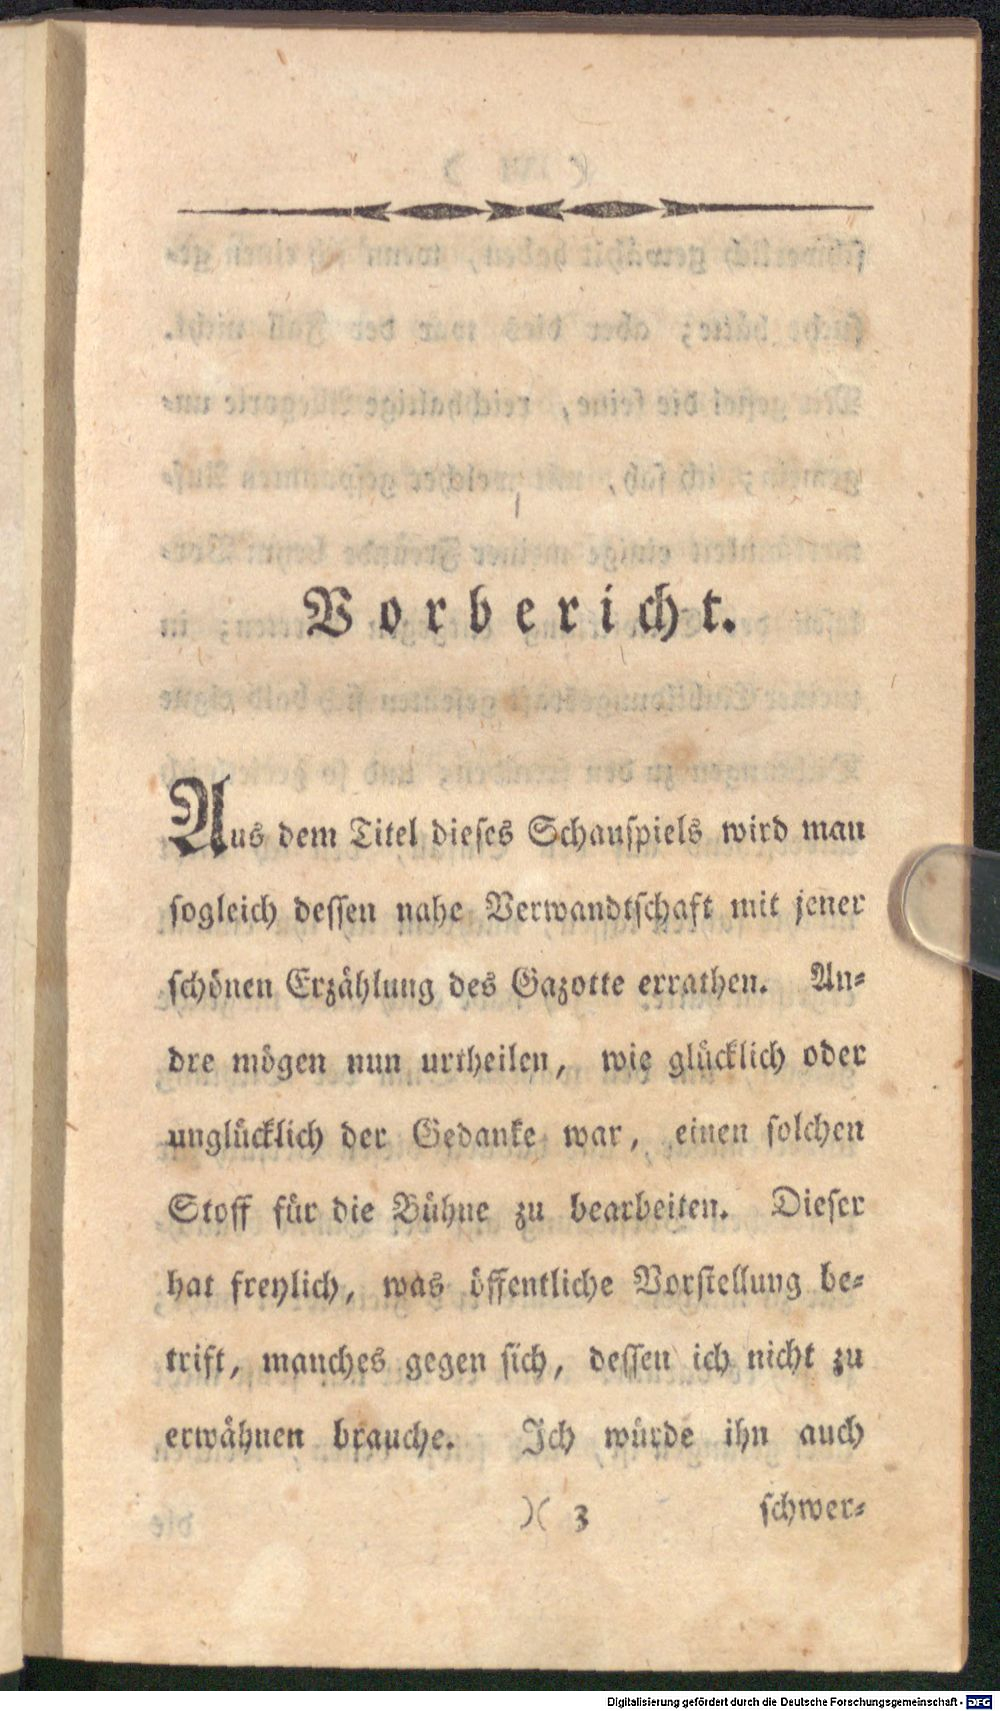 Vorbericht.
Aus dem Titel dieses Schauspiels wird man
sogleich dessen nahe Verwandtschaft mit jener
schönen Erzählung des Gazotte errathen. An-
dre mögen nun urtheilen, wie glücklich oder
unglücklich der Gedanke war, einen solchen
Stoff für die Bühne zu bearbeiten. Dieser
hat freylich, was öffentliche Vorstellung be-
trift, manches gegen sich, dessen ich nicht zu
erwähnen brauche. Ich würde ihn auch
)( 3 schwer-
Digitalisierung gefördert durch die Deutsche Forschungsgemeinschaft - DFG